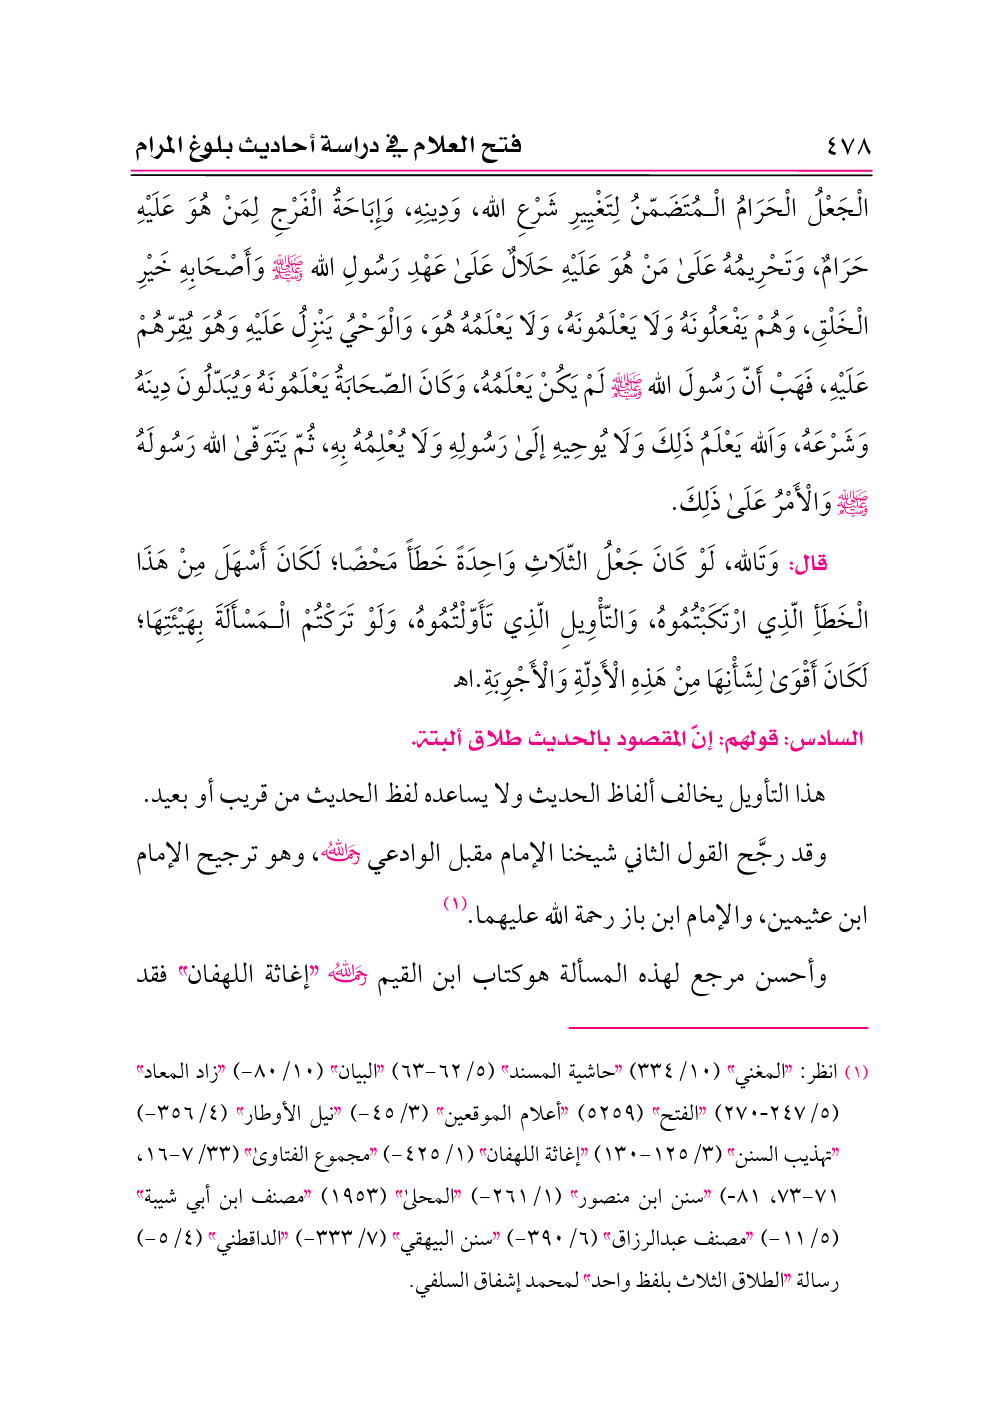 ٤٧٨ فتح العلام في دراسة أحاديث بلوغ المرام
الْجَعْلُ الْحَرَامُ الْـمُتَضَمّنُ لِتَغْيِيرِ شَرْعِ الله، وَدِينِهِ، وَإِبَاحَةُ الْفَرْجِ لِمَنْ هُوَ عَلَيْهِ
حَرَامٌ، وَتَحْرِيمُهُ عَلَىٰ مَنْ هُوَ عَلَيْهِ حَلَالٌ عَلَىٰ عَهْدِ رَسُولِ الله ﷺ وَأَصْحَابِهِ خَيْرِ
الْخَلْقِ، وَهُمْ يَفْعَلُونَهُ وَلَا يَعْلَمُونَهُ، وَلَا يَعْلَمُهُ هُوَ، وَالْوَحْيُ يَنْزِلُ عَلَيْهِ وَهُوَ يُقِرّهُمْ
عَلَيْهِ، فَهَبْ أَنّ رَسُولَ الله ﷺ لَمْ يَكُنْ يَعْلَمُهُ، وَكَانَ الصّحَابَةُ يَعْلَمُونَهُ وَيُبَدّلُونَ دِينَهُ
وَشَرْعَهُ، وَاَلله يَعْلَمُ ذَلِكَ وَلَا يُوحِيهِ إلَىٰ رَسُولِهِ وَلَا يُعْلِمُهُ بِهِ، ثُمّ يَتَوَفّىٰ الله رَسُولَهُ
ﷺ وَالْأَمْرُ عَلَىٰ ذَلِكَ.
قال: وَتَالله، لَوْ كَانَ جَعْلُ الثّلَاثِ وَاحِدَةً خَطَأً مَحْضًا؛ لَكَانَ أَسْهَلَ مِنْ هَذَا
الْخَطَأِ الّذِي ارْتَكَبْتُمُوهُ، وَالتّأْوِيلِ الّذِي تَأَوّلْتُمُوهُ، وَلَوْ تَرَكْتُمْ الْـمَسْأَلَةَ بِهَيْئَتِهَا؛
لَكَانَ أَقْوَىٰ لِشَأْنِهَا مِنْ هَذِهِ الْأَدِلّةِ وَالْأَجْوِبَةِ.اهـ
السادس: قولهم: إنّ المقصود بالحديث طلاق ألبتة.
هذا التأويل يخالف ألفاظ الحديث ولا يساعده لفظ الحديث من قريب أو بعيد.
وقد رجَّح القول الثاني شيخنا الإمام مقبل الوادعي رحمه الله، وهو ترجيح الإمام
ابن عثيمين، والإمام ابن باز رحمة الله عليهما.(١)
وأحسن مرجع لهذه المسألة هوكتاب ابن القيم رحمه الله "إغاثة اللهفان" فقد
(١) انظر: "المغني" (١٠/ ٣٣٤) "حاشية المسند" (٥/ ٦٢-٦٣) "البيان" (١٠/ ٨٠-) "زاد المعاد"
(٥/ ٢٤٧-٢٧٠) "الفتح" (٥٢٥٩) "أعلام الموقعين" (٣/ ٤٥-) "نيل الأوطار" (٤/ ٣٥٦-)
"تهذيب السنن" (٣/ ١٢٥-١٣٠) "إغاثة اللهفان" (١/ ٤٢٥-) "مجموع الفتاوىٰ" (٣٣/ ٧-١٦،
٧١-٧٣، ٨١-) "سنن ابن منصور" (١/ ٢٦١-) "المحلىٰ" (١٩٥٣) "مصنف ابن أبي شيبة"
(٥/ ١١-) "مصنف عبدالرزاق" (٦/ ٣٩٠-) "سنن البيهقي" (٧/ ٣٣٣-) "الداقطني" (٤/ ٥-)
رسالة "الطلاق الثلاث بلفظ واحد" لمحمد إشفاق السلفي.